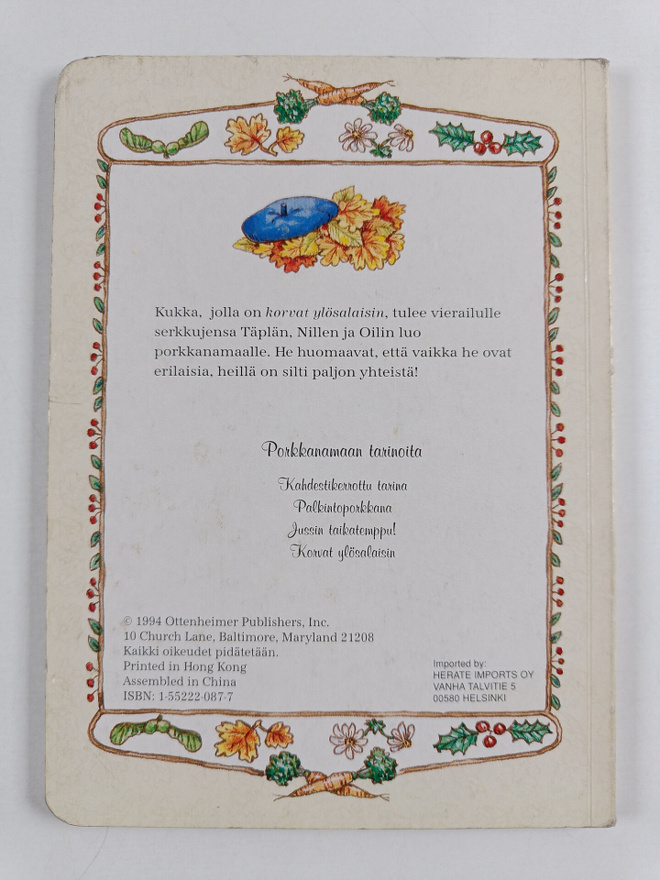 Kukka, jolla on korvat ylösalaisin, tulee vierailulle
serkkujensa Täplän, Nillen ja Oilin luo
porkkanamaalle. He huomaavat, että vaikka he ovat
erilaisia, heillä on silti paljon yhteistä!
Porkkanamaan tarinoita
Kahdestikerrottu tarina
Palkintoporkkana
Jussin taikatemppu!
Korvat ylösalaisin
© 1994 Ottenheimer Publishers, Inc.
10 Church Lane, Baltimore, Maryland 21208
Kaikki oikeudet pidätetään.
Printed in Hong Kong
Assembled in China
ISBN: 1-55222-087-7
Imported by:
HERATE IMPORTS OY
VANHA TALVITIE 5
00580 HELSINKI